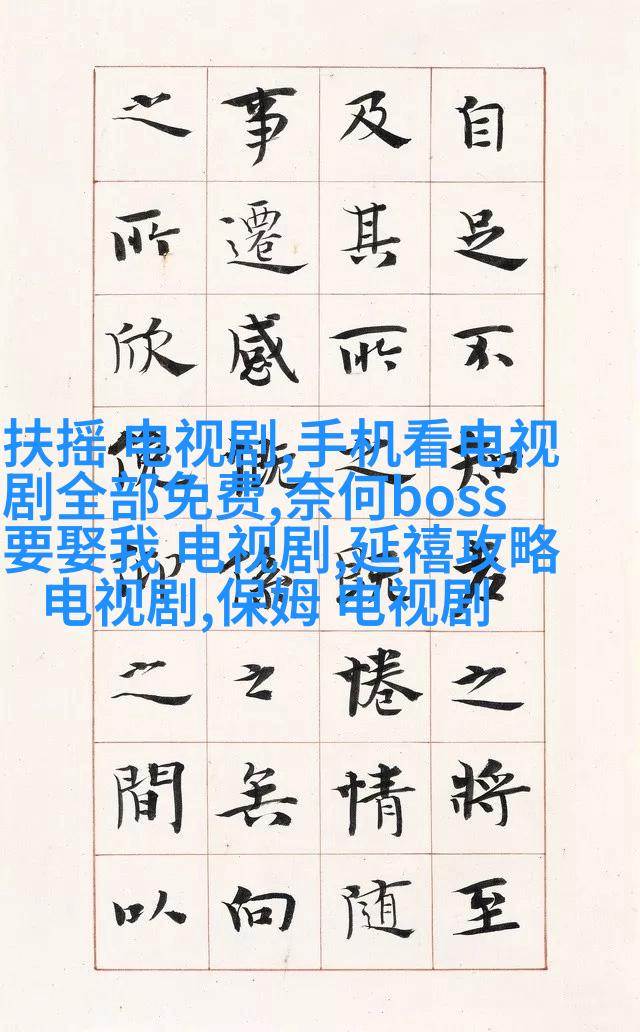 自足不知老之將至
及其所之既惓情隨
事遷感慨係之矣向
之所欣俛仰之間以
扶摇 电视剧,手机看电视
剧全部免费,奈何boss
要娶我 电视剧,延禧攻略
电视剧,保姆 电视剧